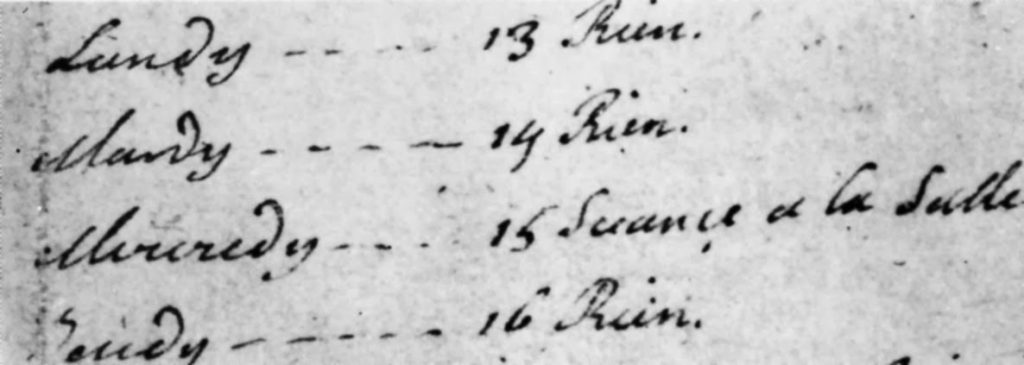 Lundy - - - - 13 Rien.
Mardy - - - - - 14 Rien.
Mercredy - - - 15 Seance a la Salle
Jeudy - - - - - - 16 Rien.